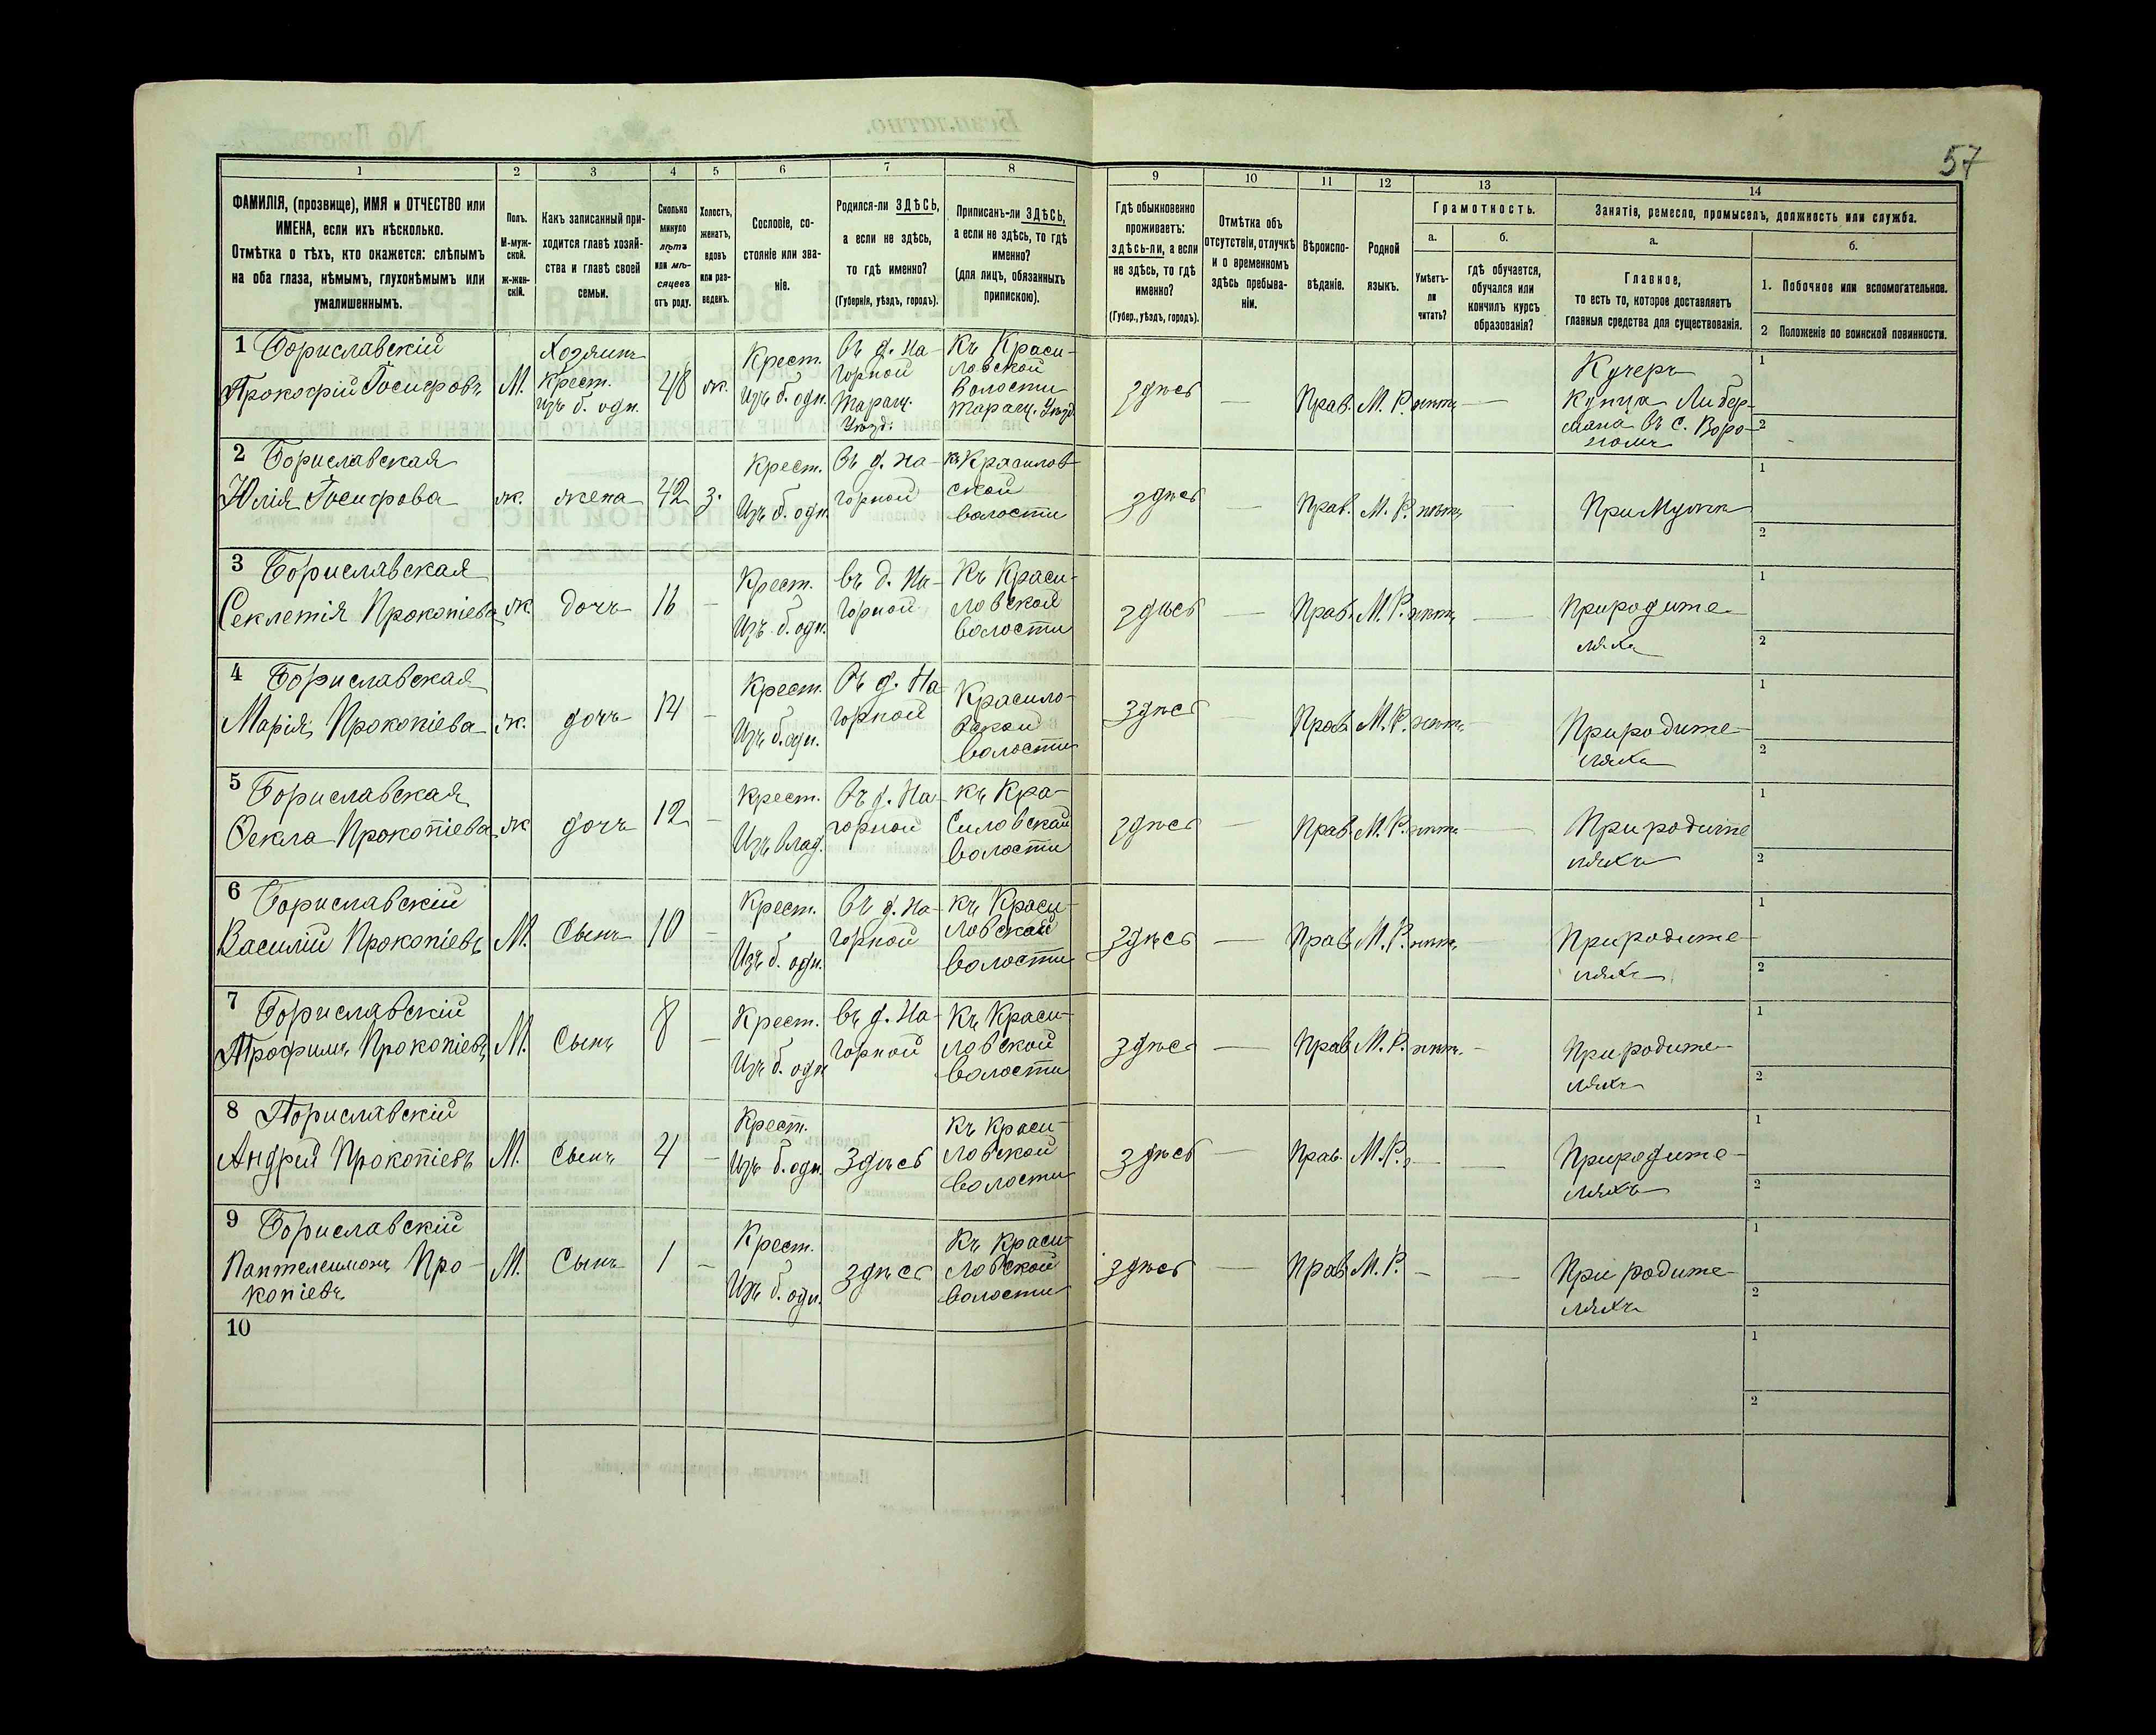 57
1 2 3 4 5 6 7 8 9 10 11 12 13 14
ФАМИЛІЯ, (прозвище), ИМЯ и ОТЧЕСТВО или
ИМЕНА, если ихъ нѣсколько.
Отмѣтка о тѣхъ, кто окажется: слѣпымъ
на оба глаза, нѣмымъ, глухонѣмымъ или
умалишеннымъ.
Полъ.
М-муж-
ской.
ж-жен-
скій.
Какъ записанный при-
ходится главѣ хозяй-
ства и главѣ своей
семьи.
Сколько
минуло
лѣтъ
или мѣ-
сяцевъ
отъ роду.
Холостъ,
женатъ,
вдовъ
или раз-
веденъ.
Сословіе, со-
стояніе или зва-
ніе.
Родился-ли ЗДѢСЬ,
а если не здѣсь,
то гдѣ именно?
(Губернія, уѣздъ, городъ).
Приписанъ-ли ЗДѢСЬ,
а если не здѣсь, то гдѣ
именно?
(для лицъ, обязанныхъ
припискою).
Гдѣ обыкновенно
проживаетъ:
здѣсь-ли, а если
не здѣсь, то гдѣ
именно?
(Губер., уѣздъ, городъ).
Отмѣтка объ
отсутствіи, отлучкѣ
и о временномъ
здѣсь пребыва-
ніи.
Вѣроиспо-
вѣданіе.
Родной
языкъ.
Грамотность.
а.
Умѣетъ-
ли
читать?
б.
гдѣ обучается,
обучался или
кончилъ курсъ
образованія?
Занятіе, ремесло, промыселъ, должность или служба.
а.
Главное,
то есть то, которое доставляетъ
главныя средства для существованія.
б.
1. Побочное или вспомогательное.
2 Положеніе по воинской повинности.
1 Бориславскій
Прокофій Іосифовъ
М.
Хозяинъ
Крест.
изъ б. одн.
48
ж.
Крест.
Изъ б. одн.
Въ д. На-
горной
Таращ.
Уѣзд.
Къ Краси-
ловской
Волости
Таращ. Уѣзд.
здѣсь
—
Прав.
М. Р.
нѣтъ
—
Кучеръ
Купца Либер-
мана въ с. Воро-
номъ
1
2
2 Бориславская
Юлія Іосифова
ж.
жена
42
з.
Крест.
Изъ б. одн.
Въ д. На-
горной
къ Красилов-
ской
волости
здѣсь
—
Прав.
М. Р.
нѣтъ
—
При Мужѣ
1
2
3 Бориславская
Секлетія Прокопіева
ж.
дочь
16
—
Крест.
Изъ б. одн.
въ д. На-
горной
Къ Краси-
ловской
волости
здѣсь
—
Прав.
М. Р.
нѣтъ
—
При родите-
ляхъ
1
2
4 Бориславская
Марія Прокопіева
ж.
дочь
14
—
Крест.
Изъ б. одн.
Въ д. На-
горной
Красило-
вской
волости
Здѣсь
Прав.
М. Р.
нѣтъ
—
При родите-
ляхъ
1
2
5 Бориславская
Ѳекла Прокопіева
ж
дочь
12
—
Крест.
Изъ Влад.
Въ д. На-
горной
къ Кра-
силовской
волости
здѣсь
—
Прав.
М. Р.
нѣтъ
—
При родите
ляхъ
1
2
6 Бориславскій
Василій Прокопіевъ
М.
Сынъ
10
—
Крест.
Изъ б. одн.
Въ д. На-
горной
къ Краси-
ловской
волости
здѣсь
—
Прав.
М. Р.
нѣтъ
—
При родите-
ляхъ
1
2
7 Бориславскій
Трофимъ Прокопіевъ
М.
Сынъ
8
—
Крест.
Изъ б. одн
въ д. На-
горной
Къ Краси-
ловской
волости
здѣсь
—
Прав.
М. Р.
нѣтъ.
—
При родите-
ляхъ
1
2
8 Бориславскій
Андрей Прокопіевъ
М.
Сынъ
4
—
Крест.
Изъ б. одн.
Здѣсь
Къ Краси-
ловской
волости
здѣсь
—
Прав.
М. Р.
—
—
При родите-
ляхъ
1
2
9 Бориславскій
Пантелеимонъ Про-
копіевъ
М.
Сынъ
1
—
Крест.
Изъ б. одн.
здѣсь
Къ Краси-
ловской
волости
здѣсь
—
Прав.
М. Р.
—
—
При родите-
ляхъ
1
2
10
1
2